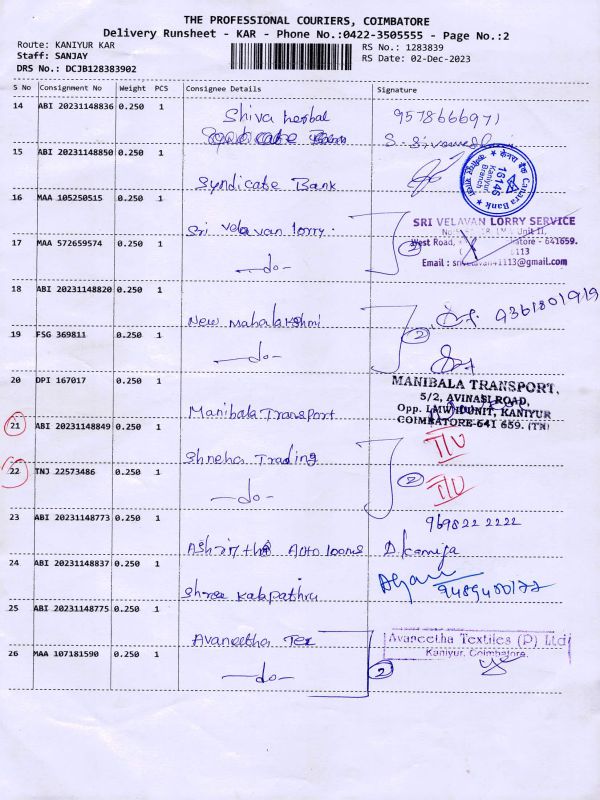 THE PROFESSIONAL COURIERS, COIMBATORE
Delivery Runsheet - KAR - Phone No.:0422-3505555 - Page No.:2
Route: KANIYUR KAR
RS No.: 1283839
Staff: SANJAY
RS Date: 02-Dec-2023
DRS No.: DCJB128383902
S No Consignment No Weight PCS Consignee Details Signature
14 ABI 20231148836 0.250 1 Shiva herbal 9578666971
15 ABI 20231148850 0.250 1 Syndicate Bank
केनरा बैंक Canara Bank
16146
Kaniyur
Branch
16 MAA 105250515 0.250 1 Sri velavan lorry.
SRI VELAVAN LORRY SERVICE
Unit II,
West Road, - 641659.
Email : srivelavan41113@gmail.com
17 MAA 572659574 0.250 1 -do- 2
18 ABI 20231148820 0.250 1 New Mahalakshmi 9361801919
19 FSG 369811 0.250 1 -do- 2
20 DPI 167017 0.250 1 Manibala Transport
MANIBALA TRANSPORT,
5/2, AVINASI ROAD,
Opp. LMW IIUNIT, KANIYUR
COIMBATORE-641 659. (TN)
21 ABI 20231148849 0.250 1 Shneha Trading T/U
22 TNJ 22573486 0.250 1 -do- 2 T/U
23 ABI 20231148773 0.250 1 969822 2222
24 ABI 20231148837 0.250 1 Shree Kalapathru
25 ABI 20231148775 0.250 1 Avaneetha Tex
Avaneetha Textiles (P) Ltd
Kaniyur, Coimbatore.
26 MAA 107181590 0.250 1 -do- 2